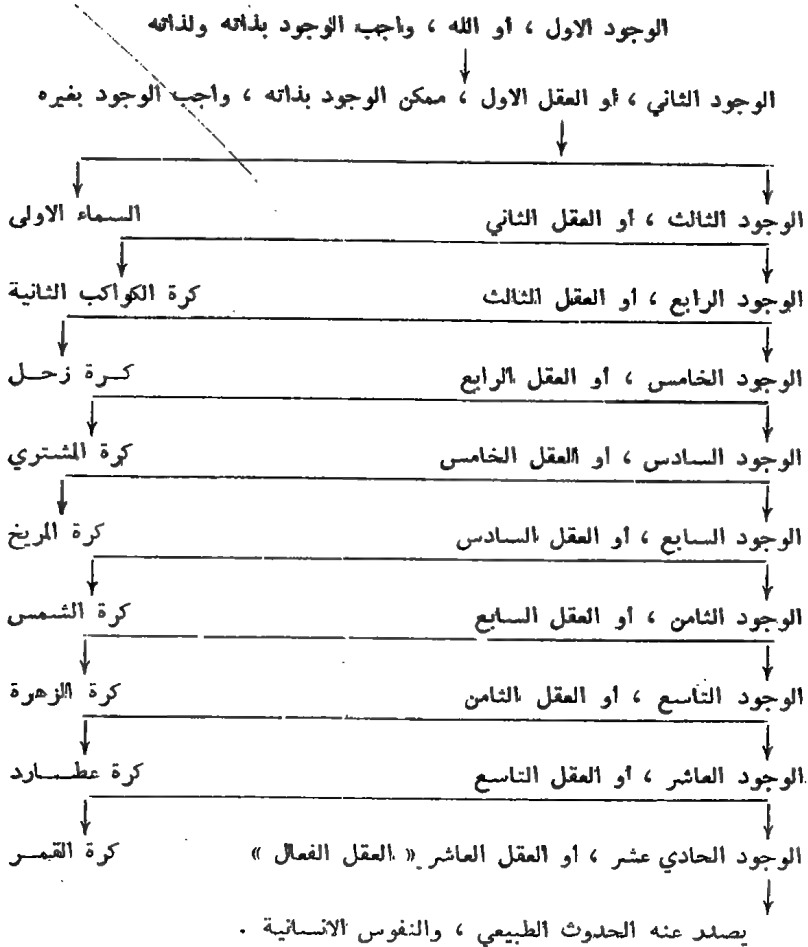 الوجود الاول ، أو الله ، واجب الوجود بذاته ولذاته
الوجود الثاني ، أو العقل الاول ، ممكن الوجود بذاته ، واجب الوجود بغيره
الوجود الثالث ، أو العقل الثاني السماء الاولى
الوجود الرابع ، أو العقل الثالث كرة الكواكب الثانية
الوجود الخامس ، أو العقل الرابع كرة زحل
الوجود السادس ، أو العقل الخامس كرة المشتري
الوجود السابع ، أو العقل السادس كرة المريخ
الوجود الثامن ، أو العقل السابع كرة الشمس
الوجود التاسع ، أو العقل الثامن كرة الزهرة
الوجود العاشر ، أو العقل التاسع كرة عطارد
الوجود الحادي عشر ، أو العقل العاشر « العقل الفعال » كرة القمر
يصدر عنه الحدوث الطبيعي ، والنفوس الانسانية .